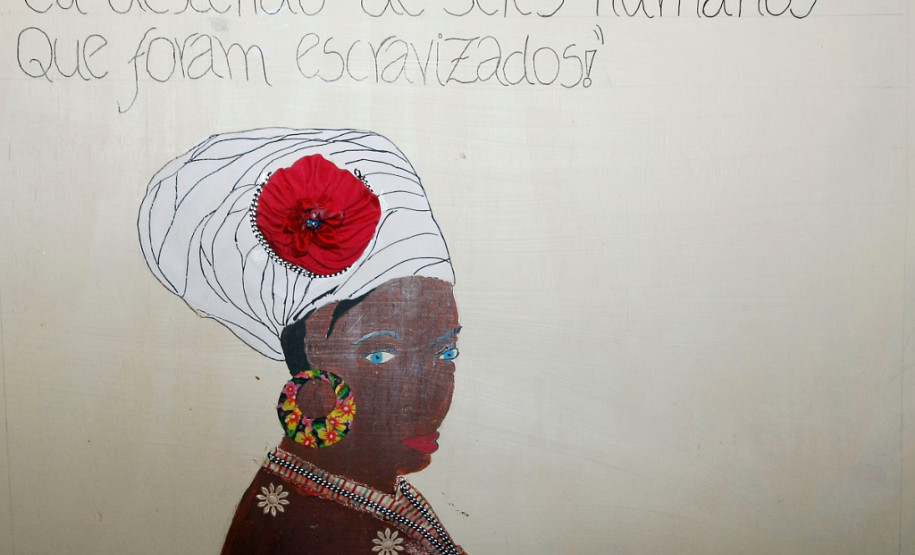 Eu descendo de seres humanos
Que foram escravizados!"